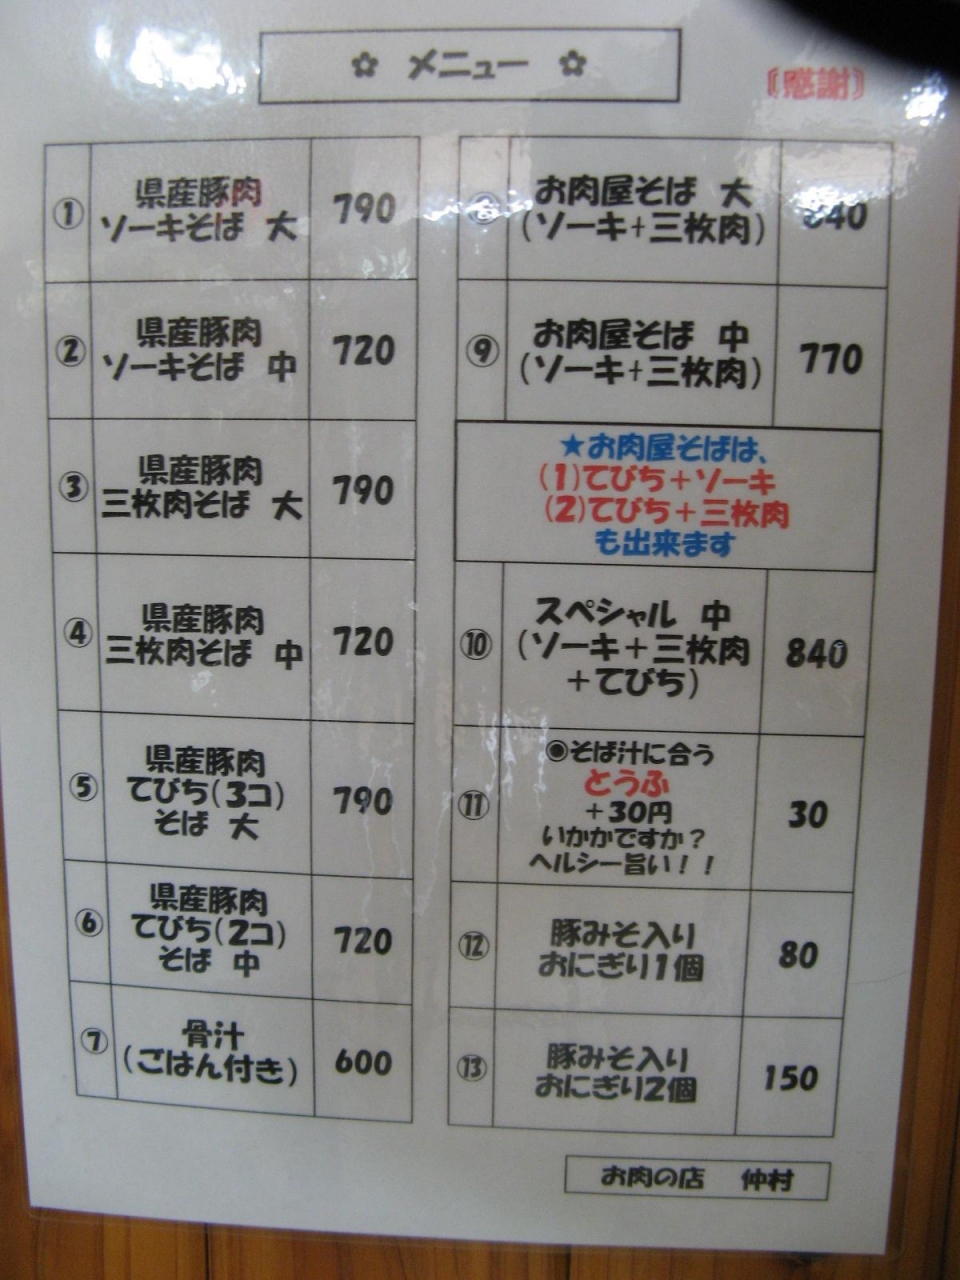 ✿ メニュー ✿
〘感謝〙
① 県産豚肉
ソーキそば 大 790
② 県産豚肉
ソーキそば 中 720
③ 県産豚肉
三枚肉そば 大 790
④ 県産豚肉
三枚肉そば 中 720
⑤ 県産豚肉
てびち(3コ)
そば 大 790
⑥ 県産豚肉
てびち(2コ)
そば 中 720
⑦ 骨汁
(ごはん付き) 600
⑧ お肉屋そば 大
(ソーキ+三枚肉) 840
⑨ お肉屋そば 中
(ソーキ+三枚肉) 770
★お肉屋そばは、
(1)てびち+ソーキ
(2)てびち+三枚肉
も出来ます
⑩ スペシャル 中
(ソーキ+三枚肉
+てびち) 840
⑪ ◉そば汁に合う
とうふ
+30円
いかかですか?
ヘルシー旨い!! 30
⑫ 豚みそ入り
おにぎり1個 80
⑬ 豚みそ入り
おにぎり2個 150
お肉の店 仲村